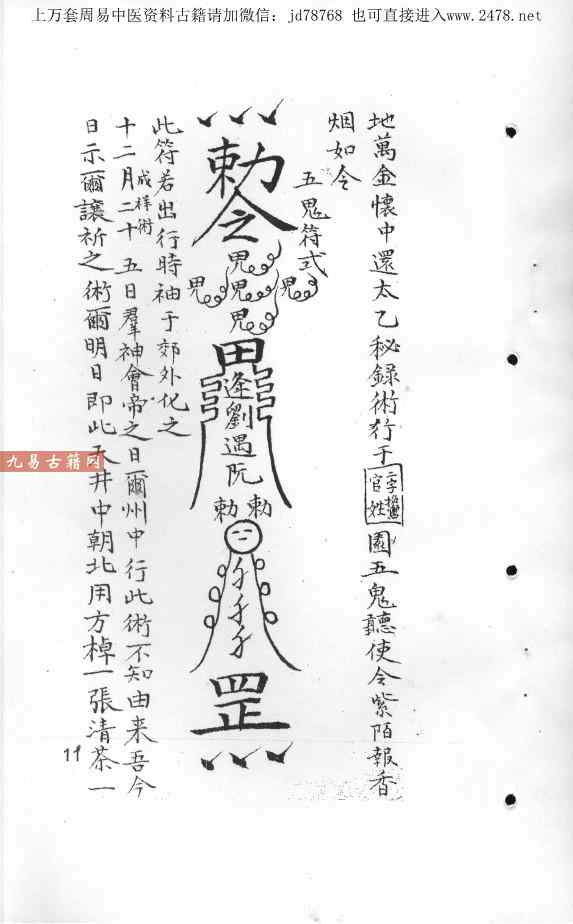 上万套周易中医资料古籍请加微信：jd78768 也可直接进入www.2478.net
地萬金懷中還太乙秘録術行于
官姓
園五鬼聽使令紫陌報香
烟如令
五鬼符式
勅令
鬼
鬼鬼鬼
鬼
田
逢劉遇阮
勅勅
罡
此符若出行時袖于郊外化之
十二月二十五日羣神會帝之日爾州中行此術不知由来吾今
成样術
日示爾讓祈之術爾明日即此天井中朝北用方棹一張清茶一
九易古籍网
11